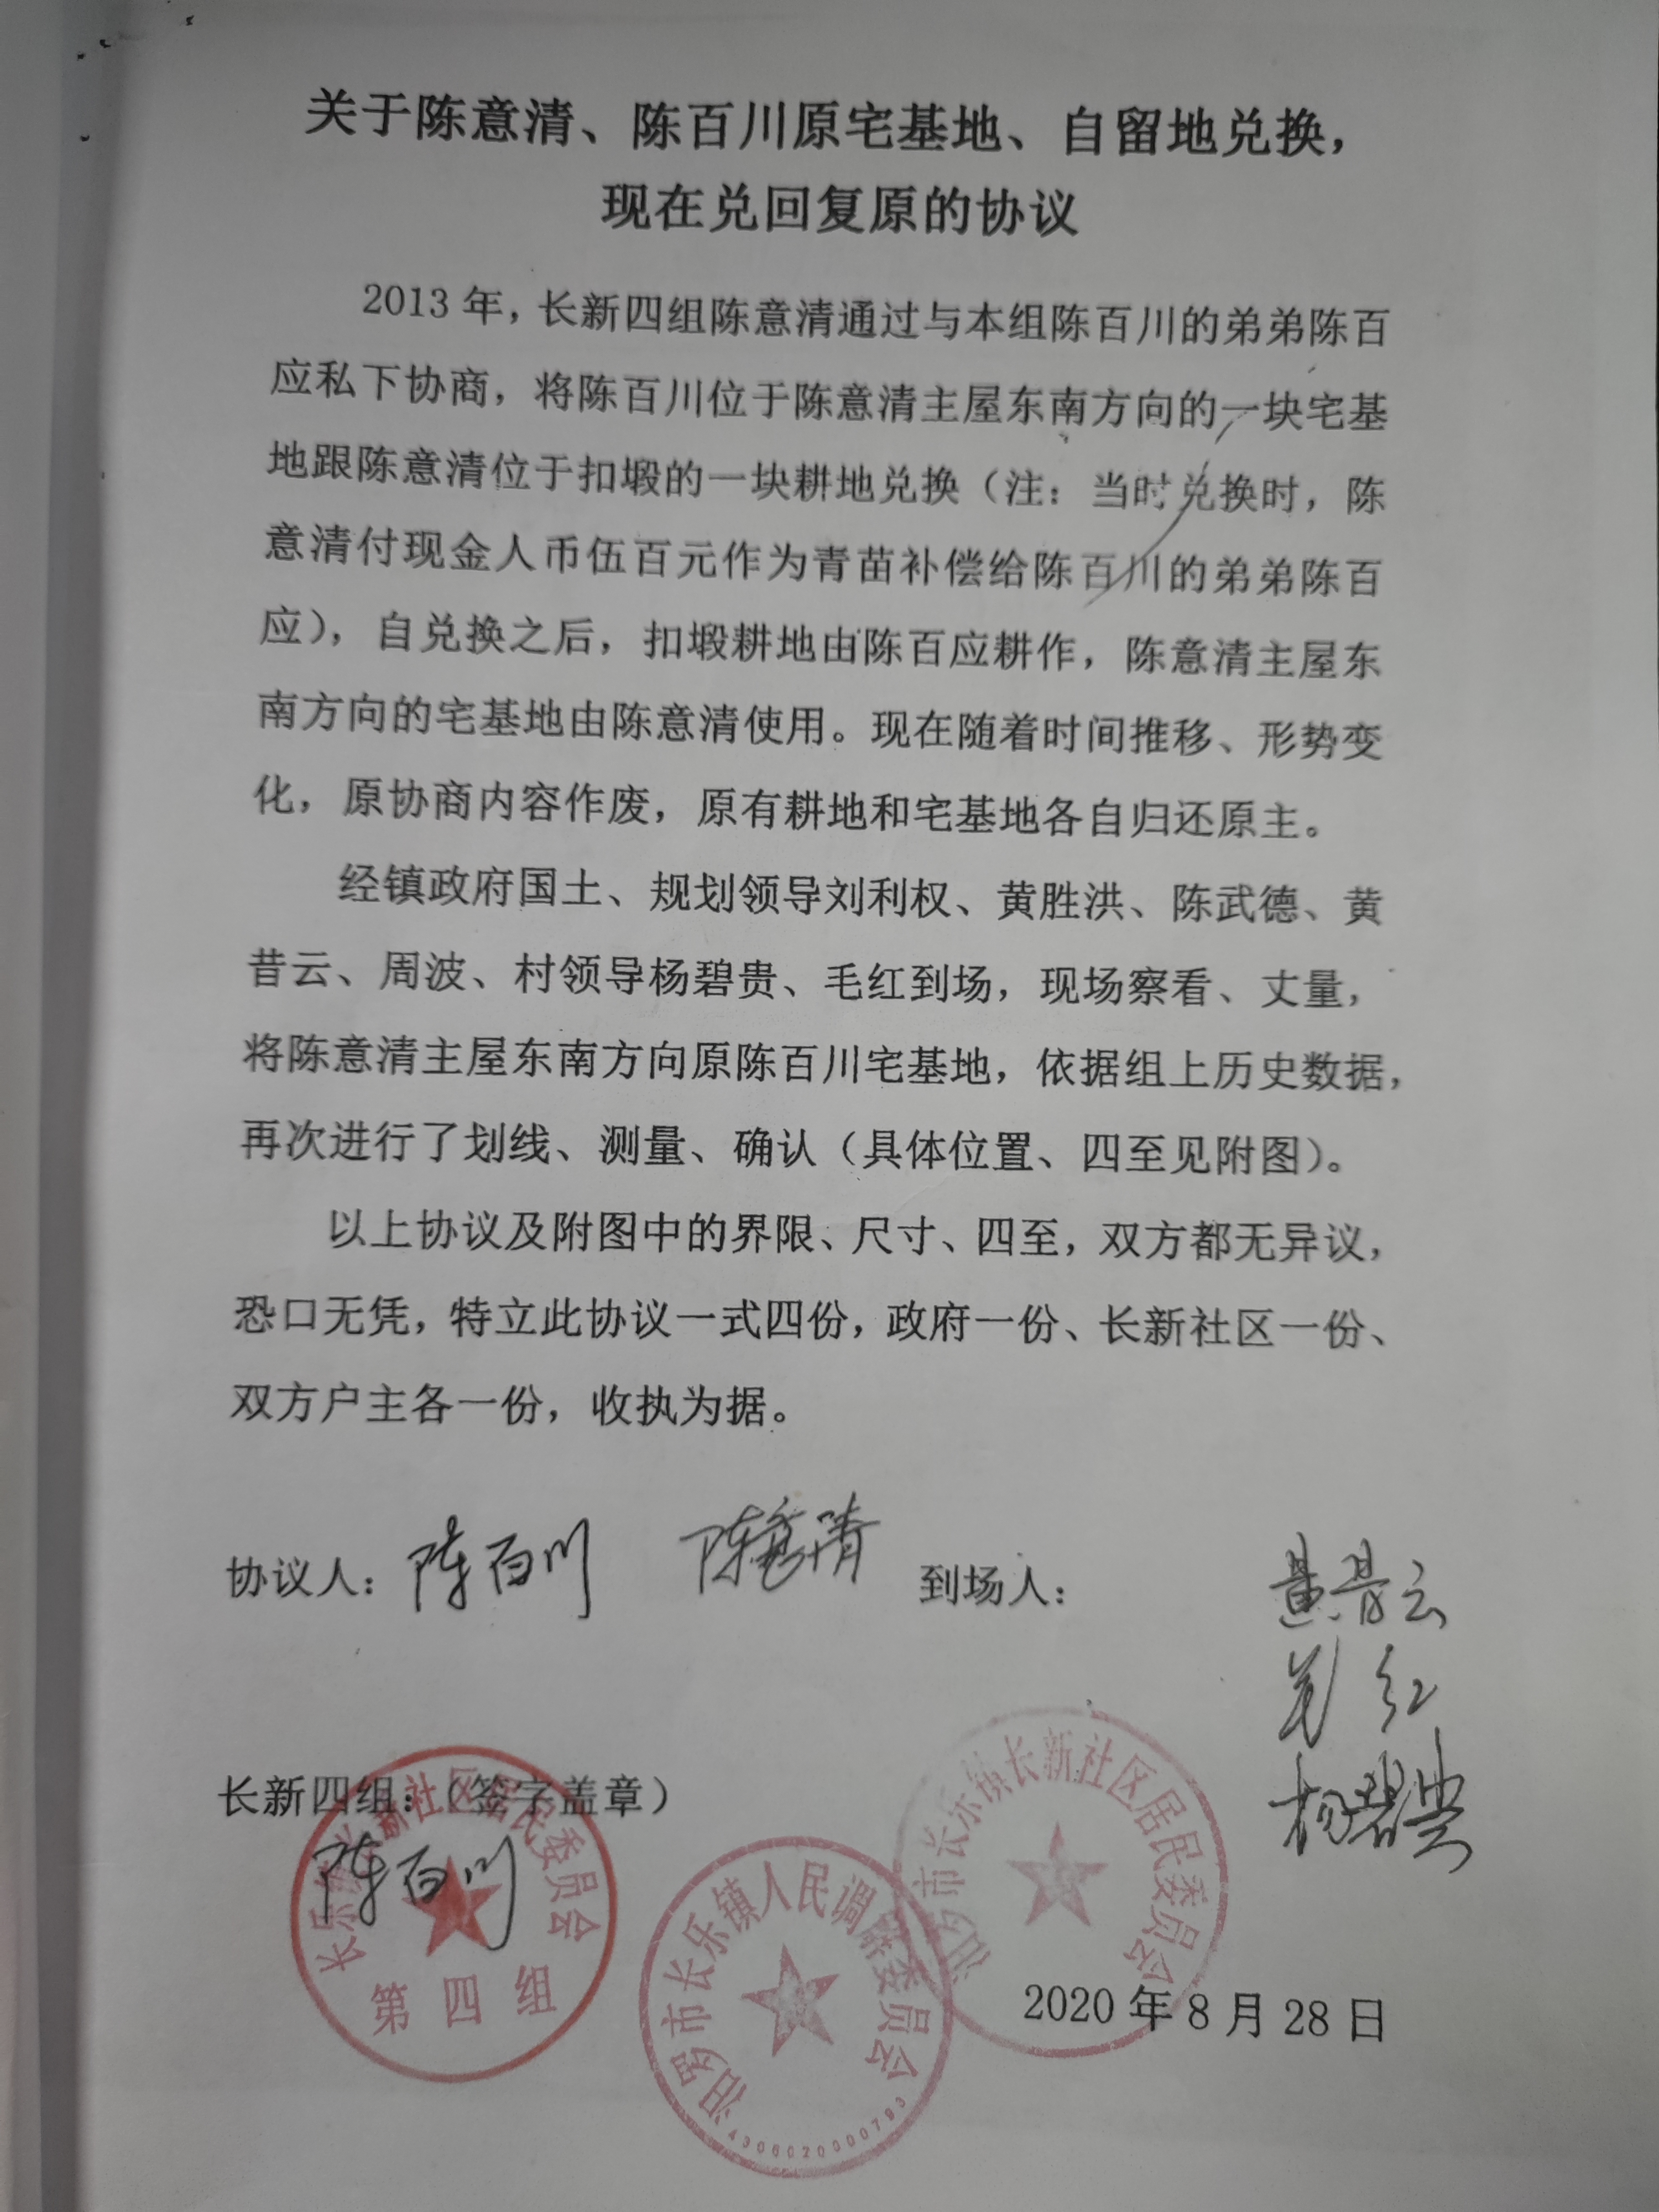 关于陈意清、陈百川原宅基地、自留地兑换，
现在兑回复原的协议
2013年，长新四组陈意清通过与本组陈百川的弟弟陈百
应私下协商，将陈百川位于陈意清主屋东南方向的一块宅基
地跟陈意清位于扣塅的一块耕地兑换（注：当时兑换时，陈
意清付现金人币伍百元作为青苗补偿给陈百川的弟弟陈百
应），自兑换之后，扣塅耕地由陈百应耕作，陈意清主屋东
南方向的宅基地由陈意清使用。现在随着时间推移、形势变
化，原协商内容作废，原有耕地和宅基地各自归还原主。
经镇政府国土、规划领导刘利权、黄胜洪、陈武德、黄
昔云、周波、村领导杨碧贵、毛红到场，现场察看、丈量，
将陈意清主屋东南方向原陈百川宅基地，依据组上历史数据，
再次进行了划线、测量、确认（具体位置、四至见附图）。
以上协议及附图中的界限、尺寸、四至，双方都无异议，
恐口无凭，特立此协议一式四份，政府一份、长新社区一份、
双方户主各一份，收执为据。
协议人：陈百川 陈意清 到场人：黄昔云
毛红
杨碧贵
长新四组：（签字盖章）
陈百川
长乐镇长新社区居民委员会
第四组
汨罗市长乐镇人民调解委员会
4306020000793
汨罗市长乐镇长新社区居民委员会
2020年8月28日